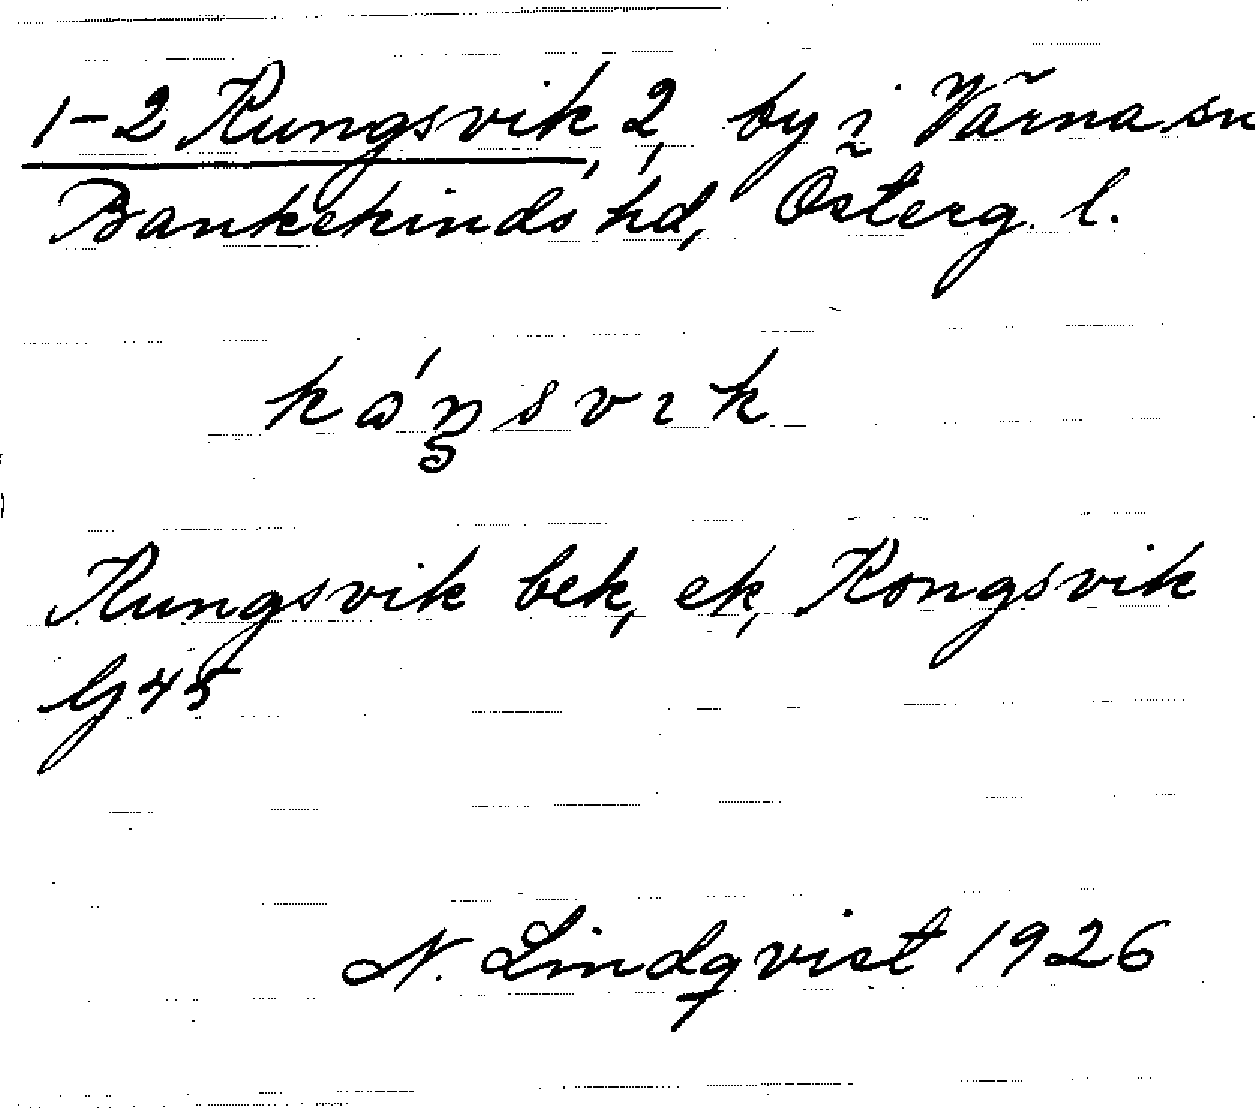 1-2 Kungsvik, 2, by i Vårna sn
Bankekinds hd, Österg. l.
kåŋsvɪk
Kungsvik bek, ek, Kongsvik
G45
N. Lindqvist 1926